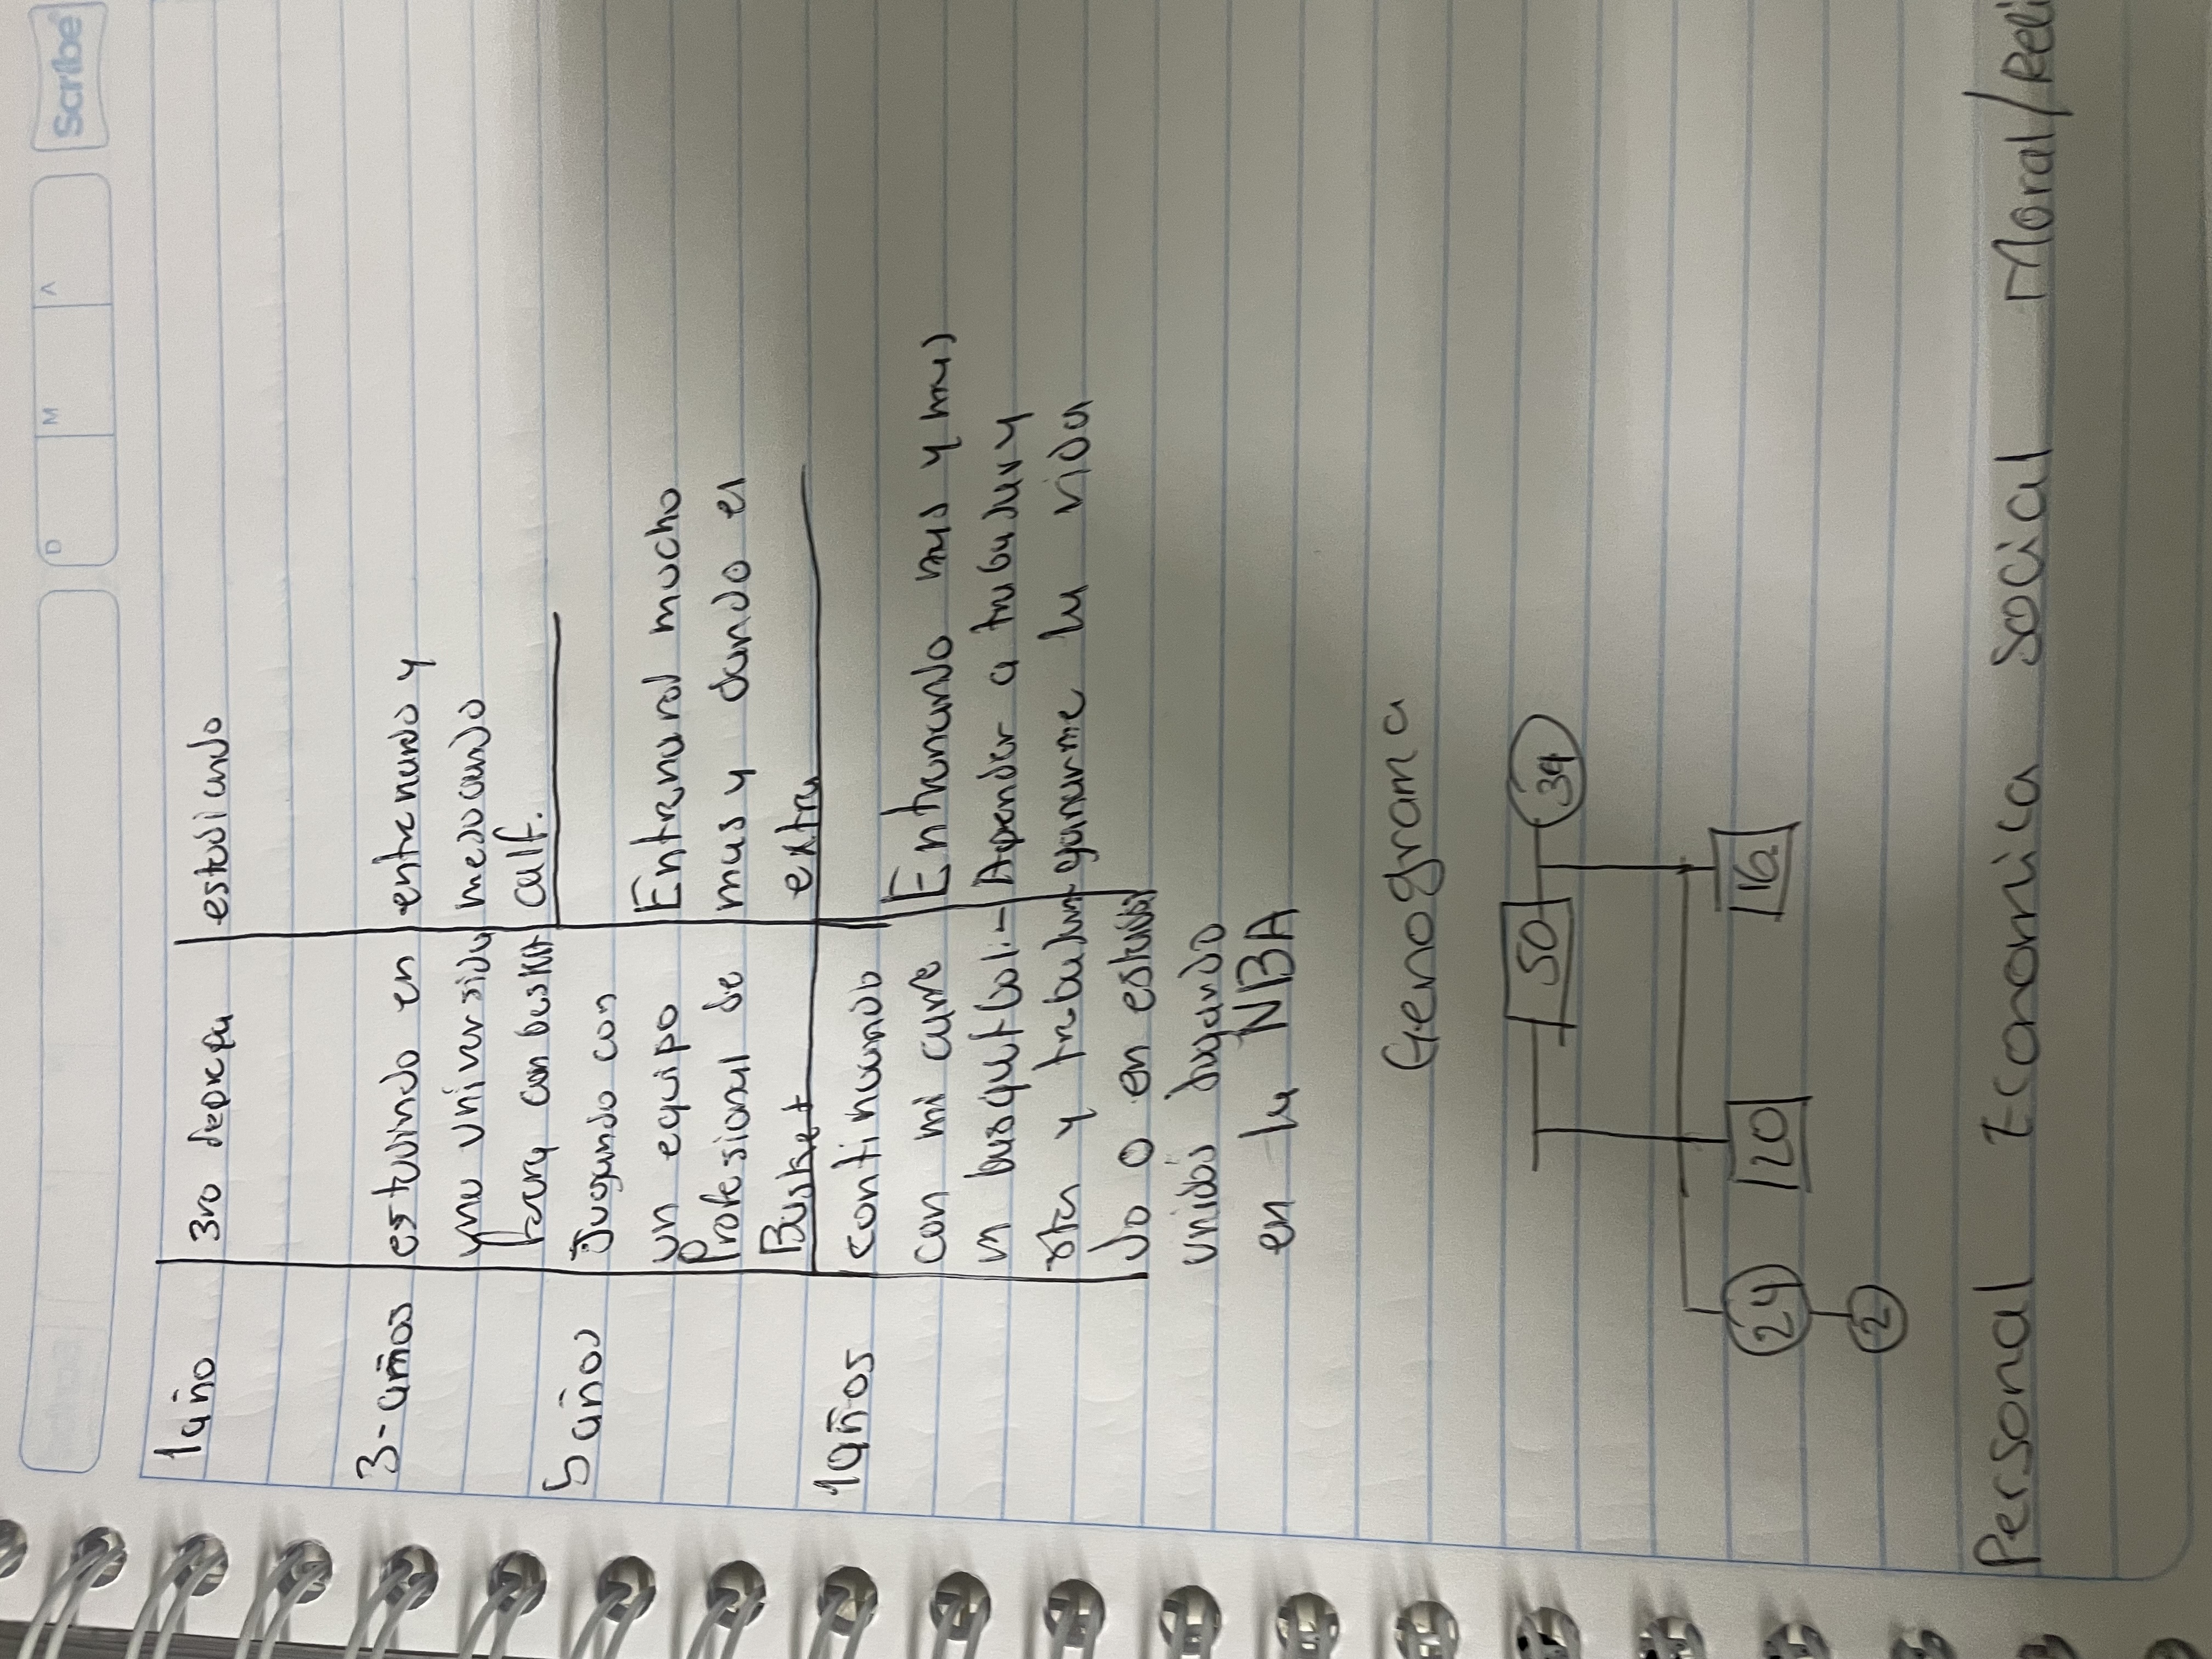 Scribe
D M A
1año 3ro de prepa estudiando
3-años estudindo en entrenando y
una universida mejorando
para con basket calf.
5 años Jugando con
un equipo Entranarol mucho
Profesional de mas y dando el
Basket extra
10años continuando
con mi carre Entrenando mas y mas
n basquetboli- Apender a trabajar y
sta y trabajan ganarme la vida
do o en estados
unidos jugando
en la NBA
Genograma
50 34
24 20 16
2
Personal Economica Social Moral/Reli